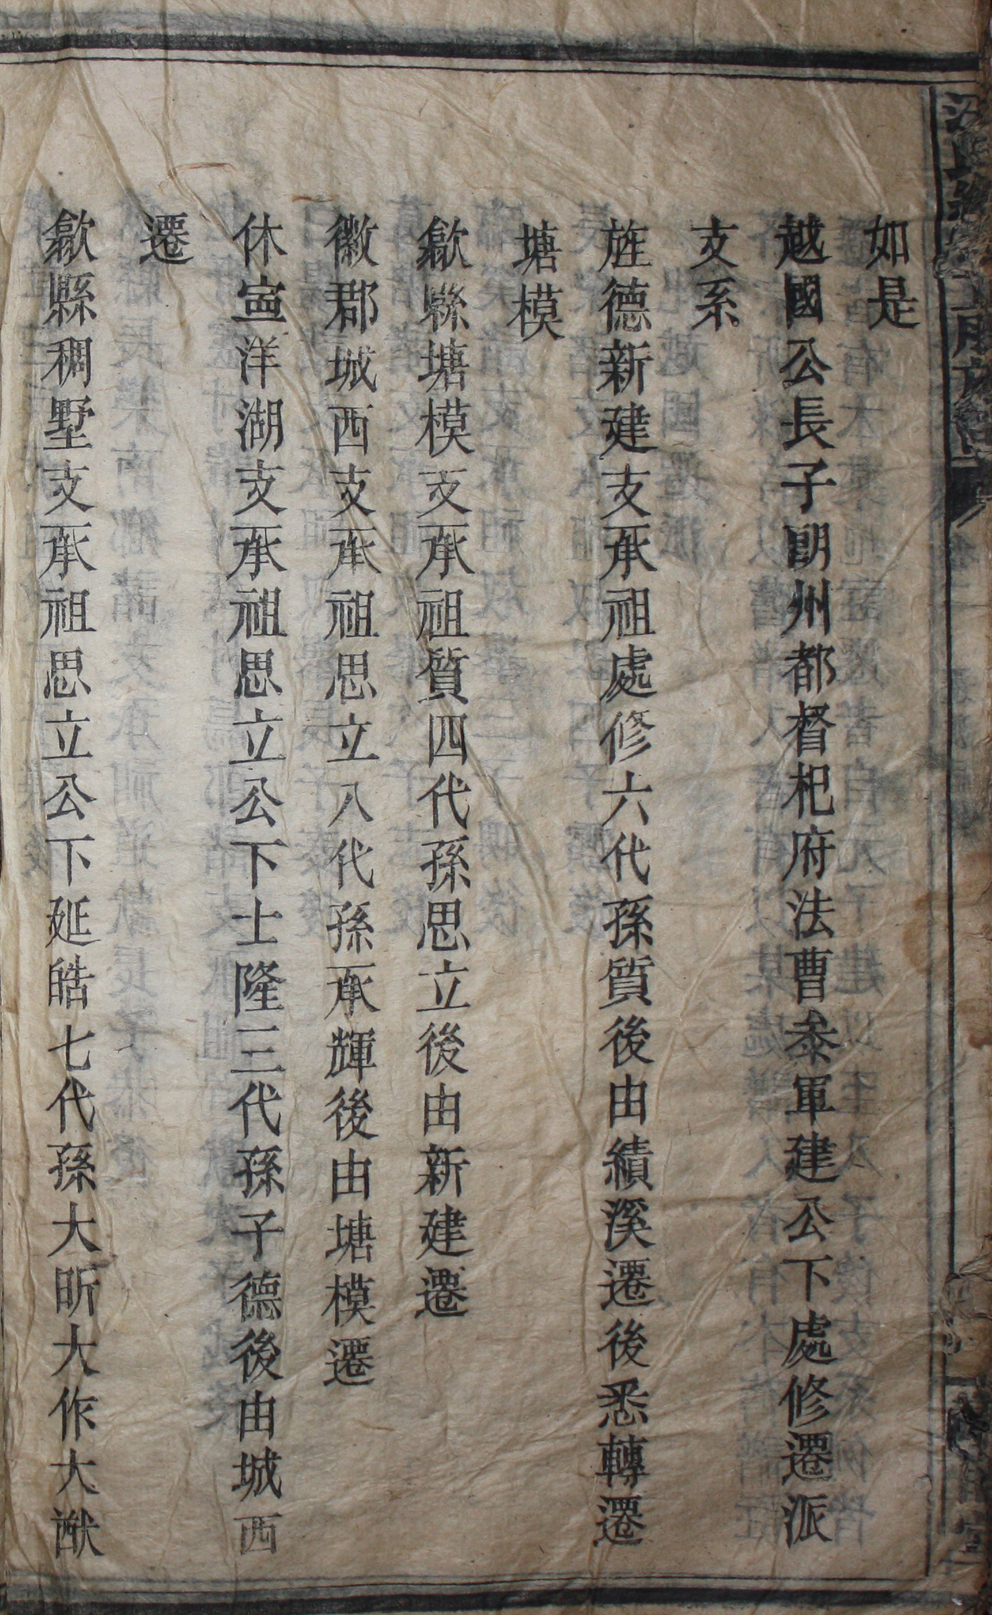 如是
越國公長子朗州都督杞府法曹叅軍建公下處修遷派
支系
旌德新建支承祖處修六代孫質後由績溪遷後悉轉遷
塘模
歙縣塘模支承祖質四代孫思立後由新建遷
徽郡城西支承祖思立八代孫承輝後由塘模遷
休寍洋湖支承祖思立公下士隆三代孫子德後由城西
遷
歙縣稠墅支承祖思立公下延皓七代孫大昕大作大猷